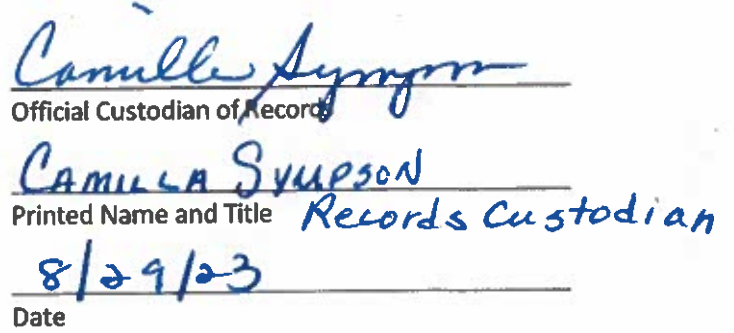 Camilla Sympson
Official Custodian of Records
CAMILLA SYMPSON
Printed Name and Title Records Custodian
8/29/23
Date